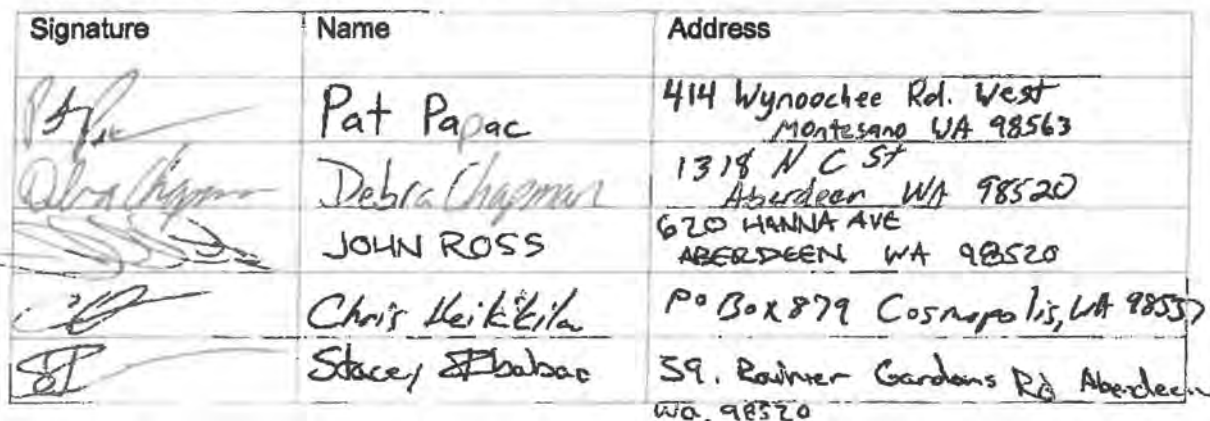 Signature Name Address
Pat Papac 414 Wynoochee Rd. West
Montesano WA 98563
Debra Chapman Debra Chapman 1318 N C St
Aberdeen WA 98520
JOHN ROSS 620 HANNA AVE
ABERDEEN WA 98520
Chris Heikkila PO Box 879 Cosmopolis, WA 98537
Stacey 59. Rainier Gardens Rd Aberdeen
wa. 98520